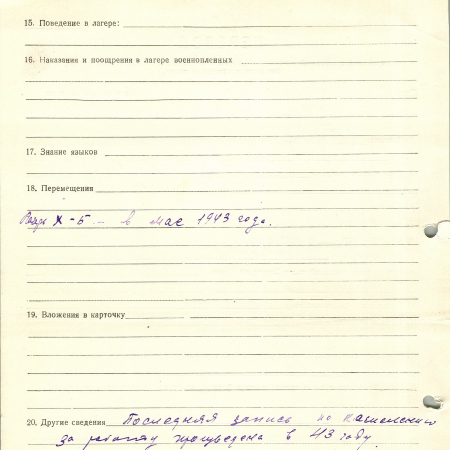 15. Поведение в лагере:
16. Наказания и поощрения в лагере военнопленных
17. Знание языков
18. Перемещения
X - Б - в мае 1943 года.
19. Вложения в карточку
20. Другие сведения Последняя запись по
за работу произведена в 43 году.